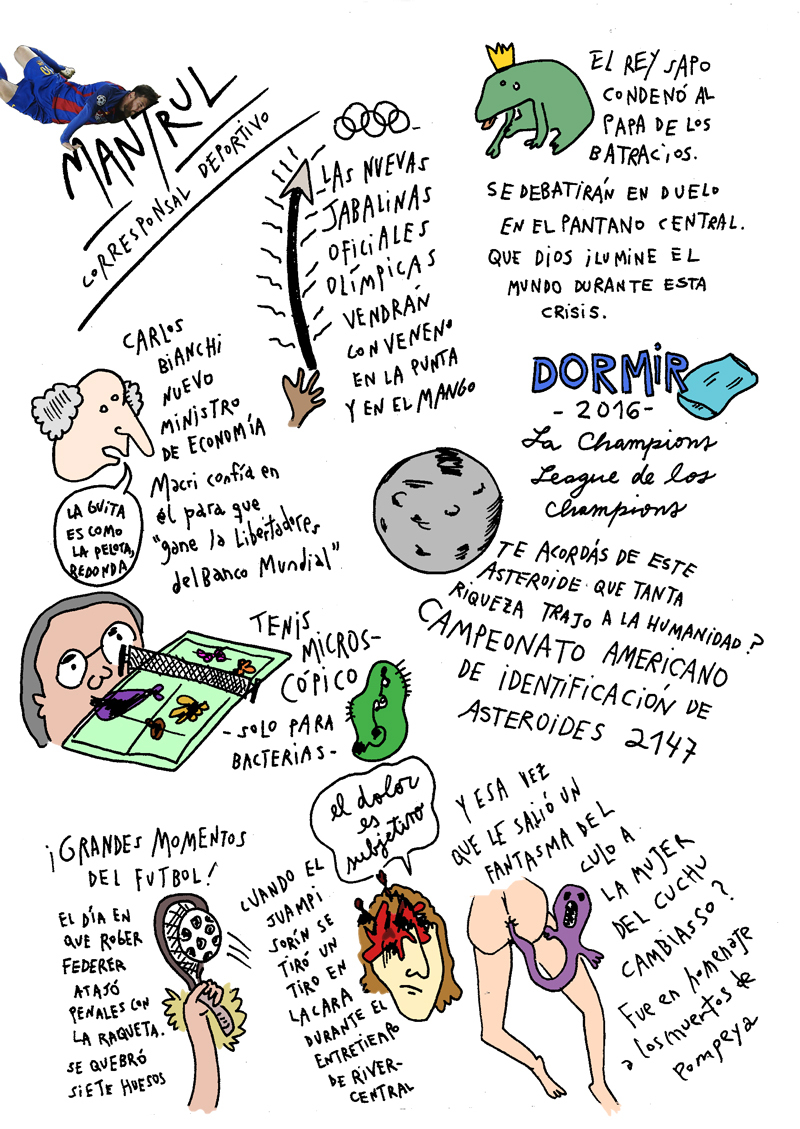 MANTRUL
CORRESPONSAL DEPORTIVO
LAS NUEVAS
JABALINAS
OFICIALES
OLÍMPICAS
VENDRÁN
CON VENENO
EN LA PUNTA
Y EN EL MANGO
EL REY SAPO
CONDENÓ AL
PAPA DE LOS
BATRACIOS.
SE DEBATIRÁN EN DUELO
EN EL PANTANO CENTRAL.
QUE DIOS ILUMINE EL
MUNDO DURANTE ESTA
CRISIS.
CARLOS
BIANCHI
NUEVO
MINISTRO
DE ECONOMÍA
Macri confía en
él para que
"gane la Libertadores
del Banco Mundial"
LA GUITA
ES COMO
LA PELOTA,
REDONDA
DORMIR
-2016-
La Champions
League de los
Champions
TE ACORDÁS DE ESTE
ASTEROIDE QUE TANTA
RIQUEZA TRAJO A LA HUMANIDAD?
CAMPEONATO AMERICANO
DE IDENTIFICACIÓN DE
ASTEROIDES 2147
TENIS
MICROS-
CÓPICO
-SOLO PARA
BACTERIAS-
¡GRANDES MOMENTOS
DEL FUTBOL!
EL DÍA EN
QUE ROGER
FEDERER
ATAJÓ
PENALES CON
LA RAQUETA.
SE QUEBRÓ
SIETE HUESOS
CUANDO EL
JUAMPI
SORÍN SE
TIRÓ UN
TIRO EN
LA CARA
DURANTE EL
ENTRETIEMPO
DE RIVER-
CENTRAL
el dolor
es
subjetivo
Y ESA VEZ
QUE LE SALIÓ UN
FANTASMA DEL
CULO A
LA MUJER
DEL CUCHU
CAMBIASSO?
Fue en homenaje
a los muertos de
Pompeya